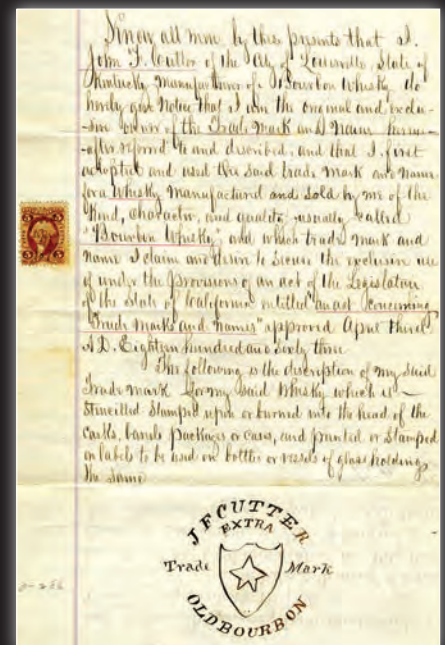 Know all men by these presents that I.
John F. Cutter of the City of Louisville, State of
Kentucky, manufacturer of Bourbon Whisky do
hereby give Notice that I am the original and exclu-
-sive owner of the Trade Mark and Name herein-
-after referred to and described, and that I first
adopted and used the said trade mark and name
for a Whisky manufactured and sold by me of the
Kind, Character, and quality usually called
"Bourbon Whisky," and which trade mark and
name I claim and desire to secure the exclusive use
of under the provisions of an act of the Legislature
of the State of California entitled an act concerning
"Trade Marks and names" approved April third
A.D. Eighteen hundred and sixty three
The following is the description of my said
Trade mark for my said Whisky which is —
Stencilled Stamped upon or burned into the head of the
casks, barrels packages or cases, and printed or Stamped
on labels to be used on bottles or vessels of glass holding
the same
J F CUTTER
EXTRA
Trade Mark
OLD BOURBON